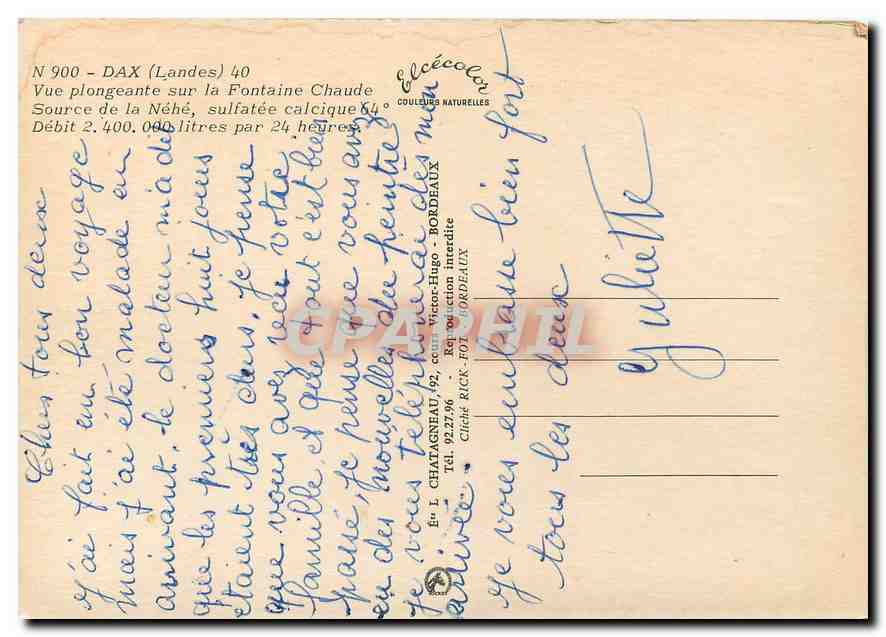 N 900 - DAX (Landes) 40
Vue plongeante sur la Fontaine Chaude
Source de la Néhé, sulfatée calcique 64°
Débit 2.400.000 litres par 24 heures.
Elcécolor
COULEURS NATURELLES
Éts L. CHATAGNEAU, 92, cours Victor-Hugo - BORDEAUX
Tél. 92.27.96 - Reproduction interdite
Cliché RICK-FOTO BORDEAUX
CPAPHIL
Chers tous deux
J'ai fait un bon voyage
mais j'ai été malade en
arrivant. le docteur m'a dit
que les premiers huit jours
étaient très durs. je pense
que vous avez reçu votre
famille et que tout c'est bien
passé, je pense que vous avez
eu des nouvelles du peintre
je vous téléphonerai dès mon
arrivée.
Je vous embrasse bien fort
tous les deux
Juliette